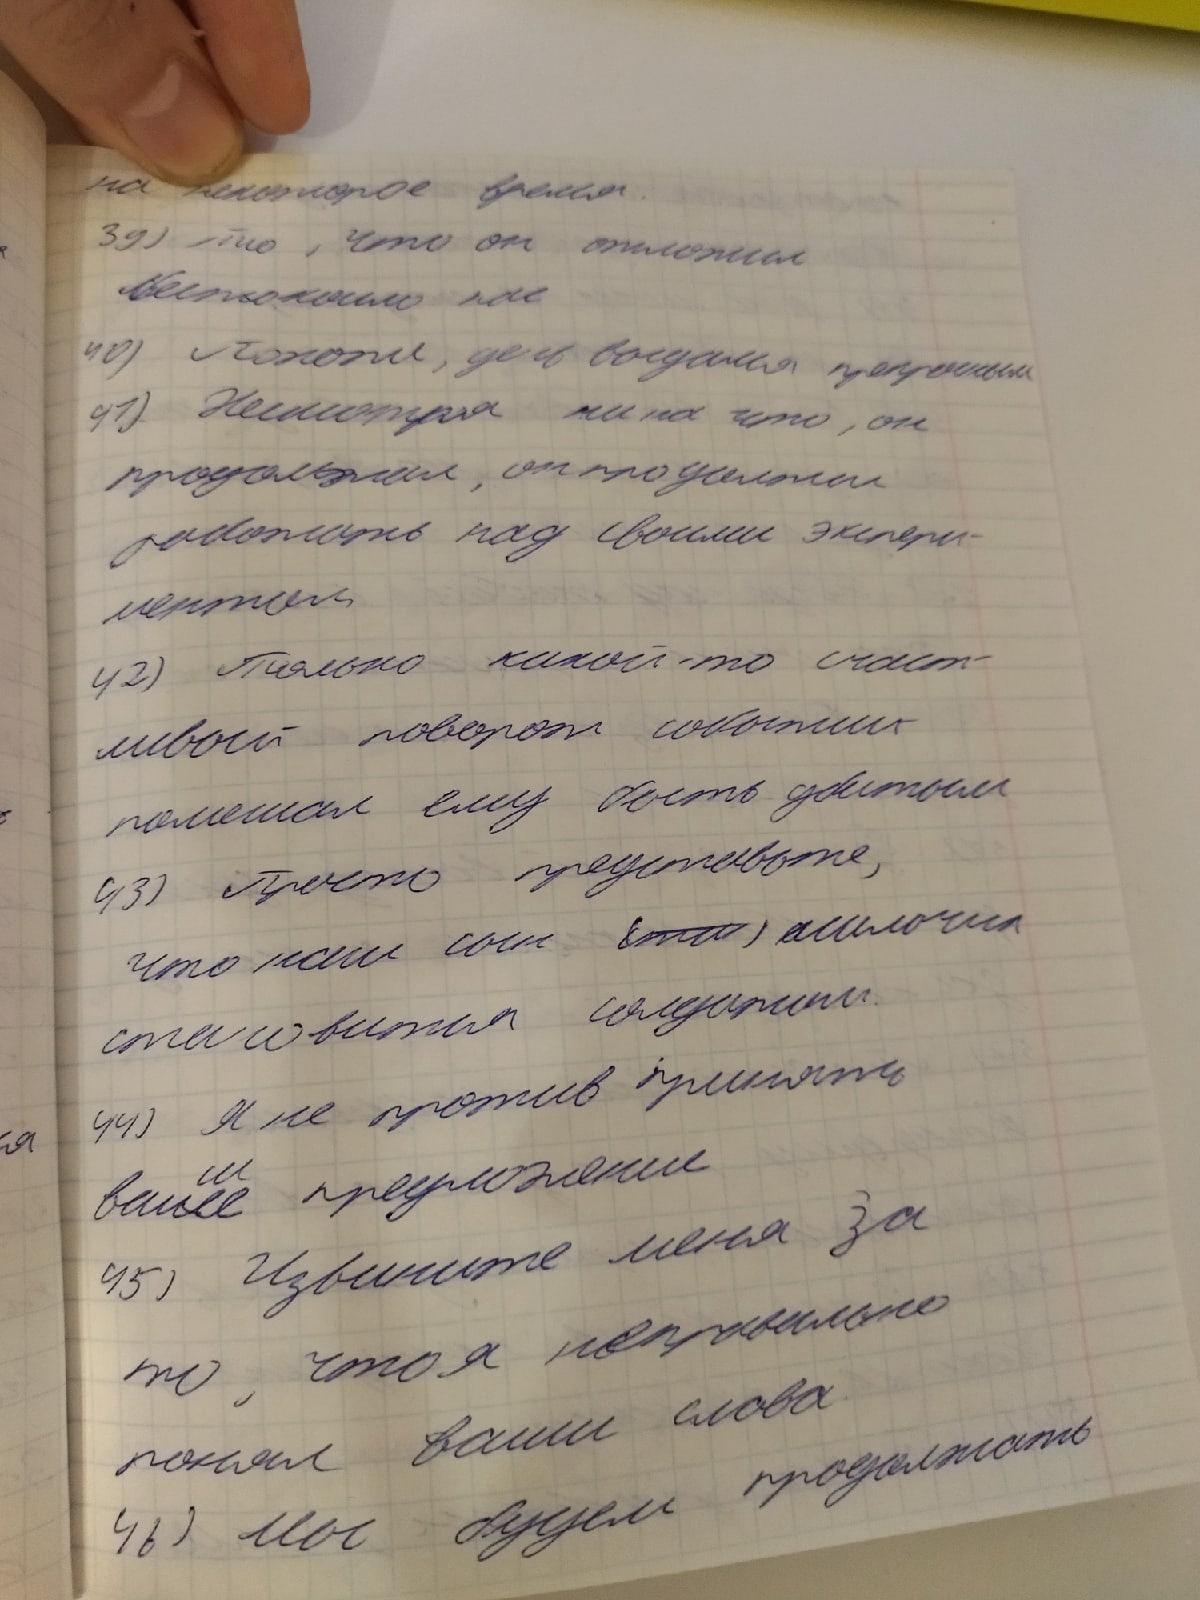 на некоторое время.
39) То, что он отложил
беспокоило нас
40) Похоже, день выдался прекрасным
41) Несмотря ни на что, он
продолжил, он продолжил
работать над своими экспери-
ментом
42) Только какой-то счаст-
ливый поворот событий
помешал ему быть убитым
43) Просто представьте,
что наш сын
становится солдатом.
44) Я не против принять
ваше предложение
45) Извините меня за
то, что я неправильно
понял ваши слова.
46) Мы будем продолжать